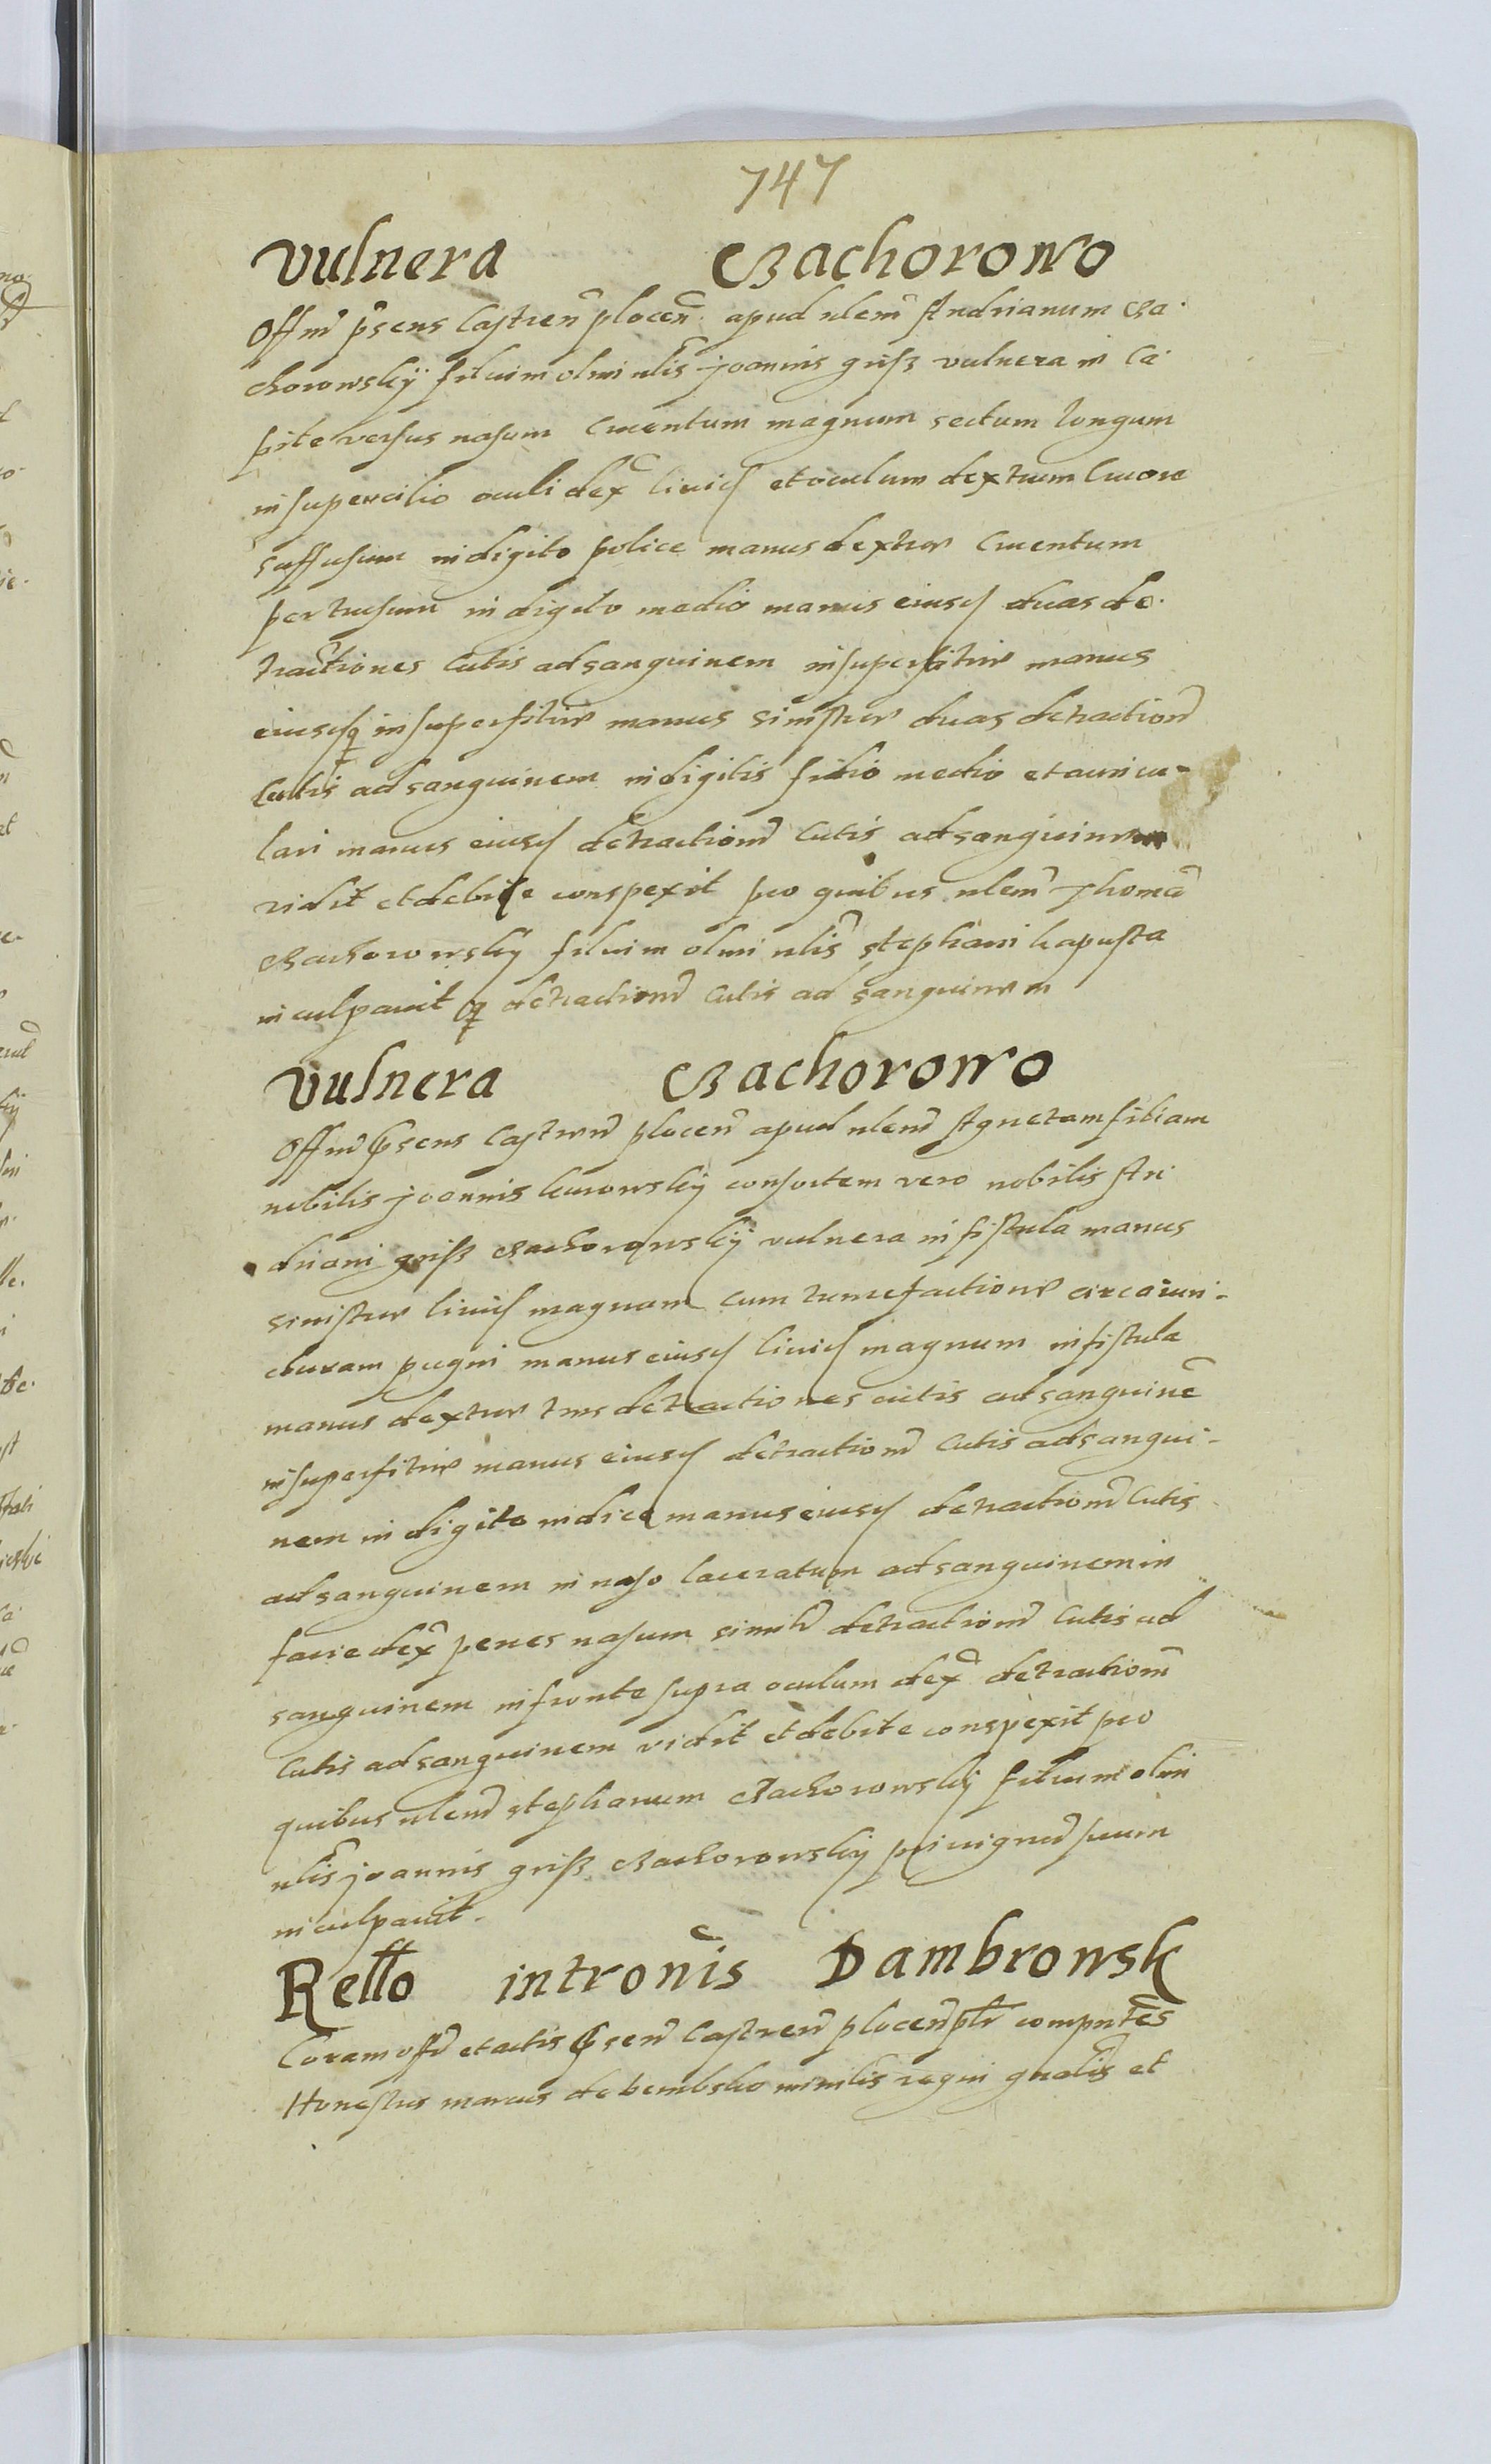 747
Vulnera Czachorowo
Offm p̃sens Castren̄ plocen̄. apud nlem̃ Andrianum Cza·
chorowskÿ filium olim nlis Joannis griſz vulnera in Ca·
pite versus nasum Cruentum magnum sectum longum
in supercilio oculi dex̃ liuid et oculum dextrum Cruore
suffusum in digito police manus dextrae Cruentum
pertrusum in digito medio manus eiusd duas de·
tractiones Cutis ad sanguinem in superfitie manus
eiusdq in superfitie manus sinistrae duas detraction̄
Cutis ad sanguinem in digitis fidio medio et auricu-
lari manus eiusd detraction̄ Cutis ad sanguinem
vidit et debite conspexit pro quibus nlem̃ Thomã
Czachorowsky filium olim nlis̃ stephani kapusta
inculpauit q detraction̄ Cutis ad sanguinem
Vulnera Czachorowo
Offm p̃sens Castren̄ plocen̄ apud nlem̃ Agnetam filiam
nobilis joannis kurowsky consortem vero nobilis An·
driani griſz Czachorowskÿ vulnera in fistula manus
sinistrae liuid magnam cum tumefactione circa iun-
cturam pugni manus eiusd liuid magnum in fistula
manus dextrae tres detractiones cutis ad sanguinē
in superfitie manus eiusd detraction̄ Cutis ad sangui-
nem in digito indice manus eiusd detraction̄ Cutis
ad sanguinem in naso laceratum ad sanguinem in
facie dex̃ penes nasum simil̄r detraction̄ Cutis ad
sanguinem in fronte supra oculum dex̃ detraction̄
Cutis ad sanguinem vidit et debite conspexit pro
quibus nlem̃ stephanum Czachorowsky filium olim
nlis̃ joannis griſz Czachorowsky priuignū suum
inculpauit.
Rel̄lo intron̄is Dambrowsk
Coram offo et actis p̃sen̄ Castren̄ plocen̄ pl̄r compn̄tes
Honestus marcus de bembsko minilis regni gn̄alis et